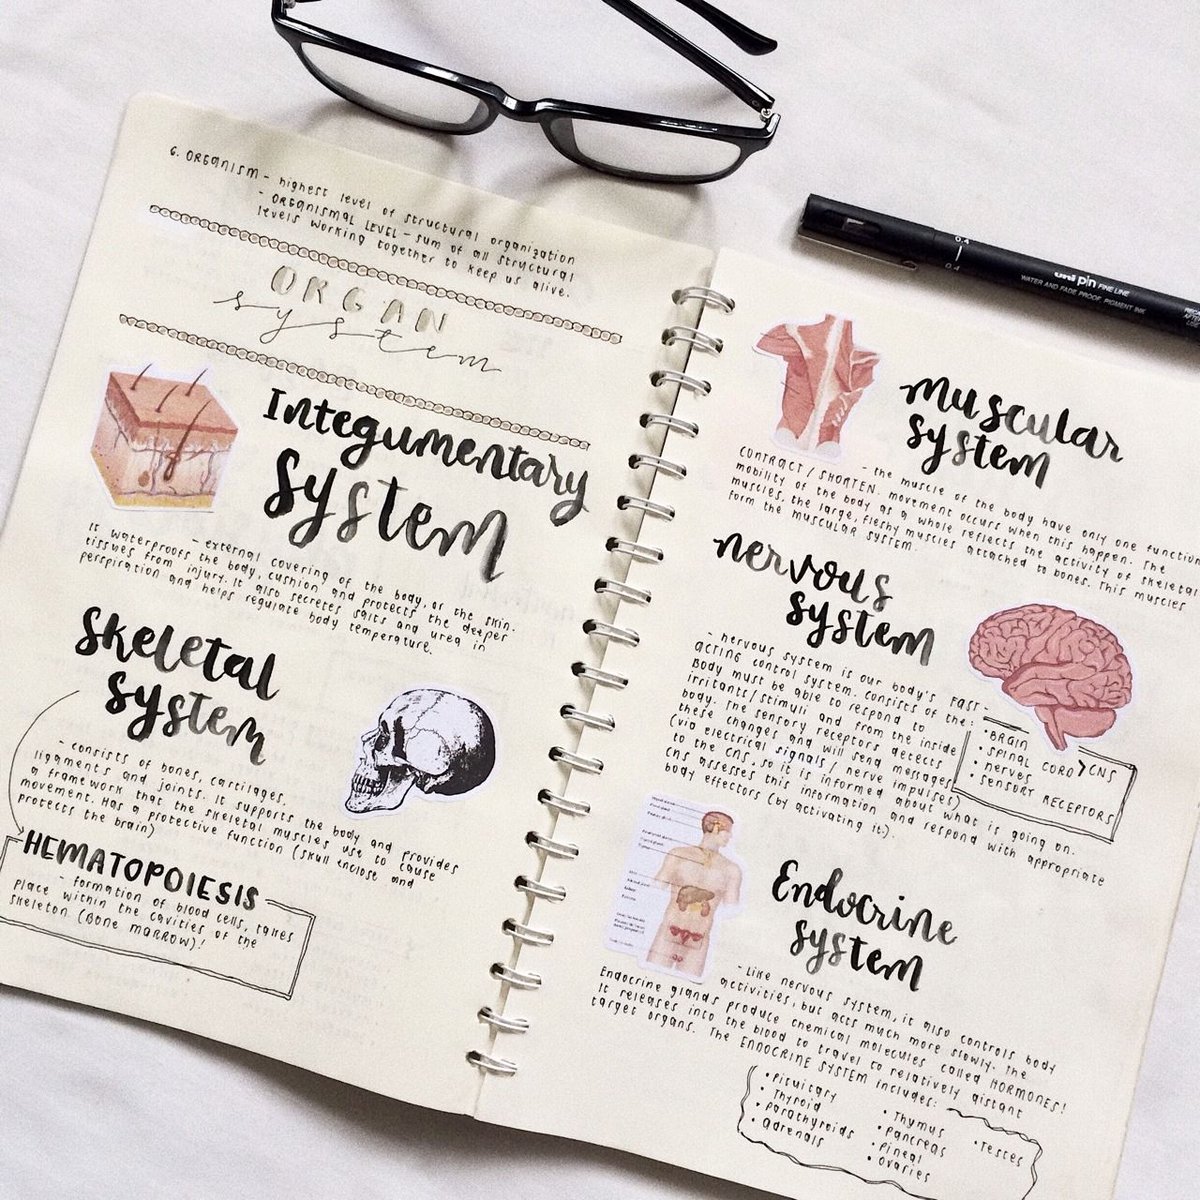 6. ORGANISM - highest level of structural organization
- ORGANISMAL LEVEL - sum of all structural
levels working together to keep us alive.
ORGAN
system
Integumentary
System
- external covering of the body, or the skin.
It waterproofs the body, cushion and protects the deeper
tissues from injury. It also secretes salts and urea in
perspiration and helps regulate body temperature.
Skeletal
System
- consists of bones, cartilages,
ligaments and joints. It supports the body and provides
a framework that the skeletal muscles use to cause
movement. Has a protective function (skull enclose and
protects the brain)
HEMATOPOIESIS
- formation of blood cells, takes
place within the cavities of the
skeleton (Bone marrow)!
0.4
0.4
uni pin FINE LINE
WATER AND FADE PROOF, PIGMENT INK
muscular
system
- the muscle of the body have only one function
CONTRACT/SHORTEN. movement occurs when this happen. The
mobility of the body as a whole reflects the activity of skeletal
muscles, the large, fleshy muscles attached to bones. This muscles
form the muscular system.
nervous
system
- nervous system is our body's FAST-
ACTING control system. Consists of the:
Body must be able to respond to
irritants/stimuli and from the inside
body. The sensory receptors detects
these changes and will send messages
(via electrical signals/nerve impulses)
to the CNS, so it is informed about what is going on.
CNS assesses this information and respond with appropriate
body effectors (by activating it).
• BRAIN
• SPINAL CORD > CNS
• nerves
• SENSORY RECEPTORS
Endocrine
system
- Like nervous system, it also controls body
activities, but acts much more slowly. The
Endocrine glands produce chemical molecules called HORMONES!
It releases into the blood to travel to relatively distant
target organs. The ENDOCRINE SYSTEM includes:
• Pituitary
• Thyroid
• parathyroids
• adrenals
• Thymus
• pancreas
• pineal
• ovaries
• Testes